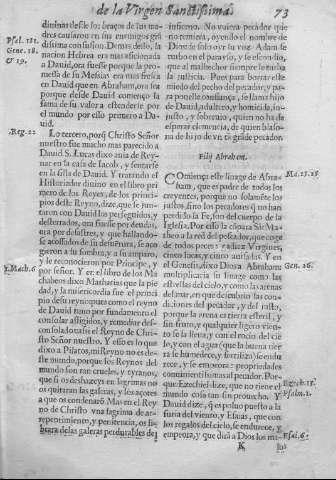 de la Virgen Sanctissima. 73
diuinas desde los braços de las madres
causaron en sus enemigos grãdissima
confusion. Demas desto, la
nacion Hebrea era mas aficionada
a Dauid, ora fuesse porque la promessa
de su Messias era mas fresca
en Dauid que en Abraham, ora sea
porque desde Dauid començo la
fama de su valor a estenderse por
el mundo por esso primero a Dauid.
Lo tercero, porq̃ Christo Señor
nuestro fue mucho mas parecido a
Dauid S. Lucas dixo auia de Reynar
en la casa de Iacob, y sentarse
en la silla de Dauid. Y tratando el
Historiador diuino en el libro primero
de los Reyes, de los principios
deste Reyno, dize, que se juntaron
con Dauid los perseguidos, y
desterrados,
acossados de su desuẽtura, se acogieron
a su sombra, y a su amparo,
y le reconocieron por Principe, y
por señor. Y en el libro de los Machabeos
dixo Mathathias que la piedad,
y la misericordia fue el principio
de su reyno;
de Dauid tuuo por fundamento el
consolar afligidos, y remediar desconsolados:
assi es el Reyno de Christo
Señor nuestro. Y esso es lo que
dixo a Pilatos, mi Reyno no es deste
mundo, porque los Reynos del
mundo son tan crueles, y tyranos,
que si os deshazeys en lagrimas no
os quitaran las galeras, y los açotes
a que os condenarõ. Mas en el Reyno
de Christo vna lagrima de arrepentimiento,
y penitencia, os librara
de las galeras perdurables del
infierno. No valiera pecador que
no temiera, oyendo el nombre de
Dios de solo oyr su voz. Adam se
turbo en el parayso, y se escondio,
que al malhechor siempre le turba
la justicia. Pues para borrar este
miedo del pecho del pecador, y para
ponelle confiança, se llama hijo
de Dauid, adultero, y homicida, injusto,
y soberuio, quien no ha de
esperar clemencia, de quien blasona
de hijo de vn tã grãde pecador.
Filij Abraham.
Comiença este linage de Abraham,
que es padre de todos los
creyentes, porque no solamẽte los
justos, sino los pecadores si no han
perdido la Fe, son del cuerpo de la
Iglesia. Por esso la cõpara Sã Matheo
a la red del pescador, que coge
de todos peces: a diez Virgines,
cinco locas, y cinco auisadas. Y en
el Genesis, dixo Dios a Abraham
multiplicaria su linage como las
estrellas del cielo, y como las arenas
del mar,
ciones del pecador, y del justo,
porque la arena es tierra esteril, y
sin fruto, y qualquier ligero viento
se la lleua, y con el rocio del cielo,
y con el agua (que la buena tierra
se humedece, y fertiliza) se endurece,
y se empeora: propiedades
comunmente justas al pecador. Porque
Ezechiel dize, que no tiene el
mundo cosa tan sin prouecho. Y
Dauid dize, q̃ es poluo puesto a la
furia del viento, y Esaias, que con
los regalos del cielo, se endurece, y
empeora, y que dirá a Dios los ma-
K
los
Psal. 131.
Gene. 18.
& 19.
Reg. 22.
1. Mach. 6
Ma. 13. 25
Gen. 26.
Ezech. 15.
Psalm. 1.
Esai. 6.